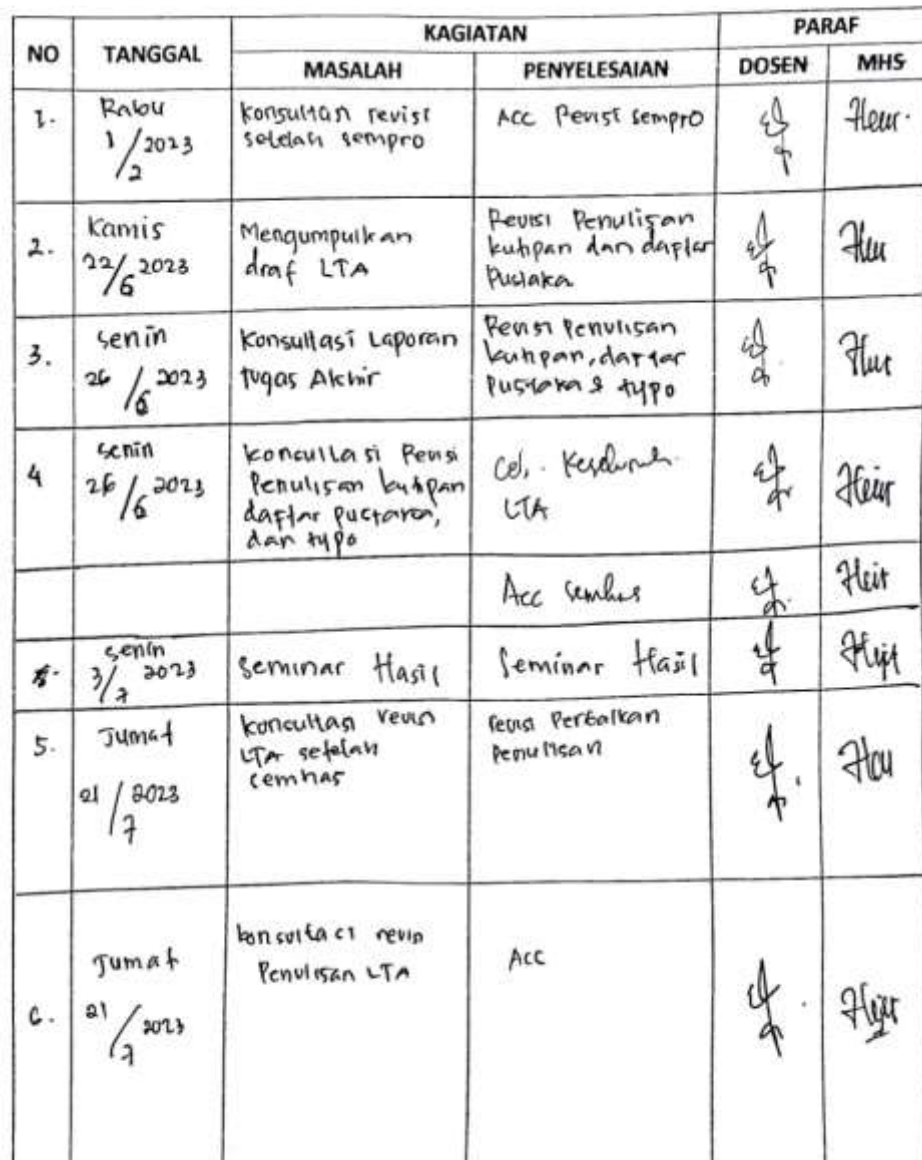 NO TANGGAL KAGIATAN PARAF
MASALAH PENYELESAIAN DOSEN MHS
1. Rabu
1/2 2023
konsultan revisi
setelah sempro
Acc Revisi sempro
2. Kamis
22/6 2023
Mengumpulkan
draf LTA
Revisi Penulisan
kutipan dan daftar
Pustaka
3. senin
26/6 2023
Konsultasi Laporan
tugas Akhir
Revisi Penulisan
kutipan, daftar
pustaka & typo
4 senin
26/6 2023
konsultasi Revisi
Penulisan kutipan
daftar pustaka,
dan typo
LTA
Acc semhas
senin
3/7 2023
Seminar Hasil
Seminar Hasil
5. Jumat
21/7 2023
konsultasi revisi
LTA setelah
semhas
revisi Perbaikan
Penulisan
6. Jumat
21/7 2023
konsultasi revisi
Penulisan LTA
Acc